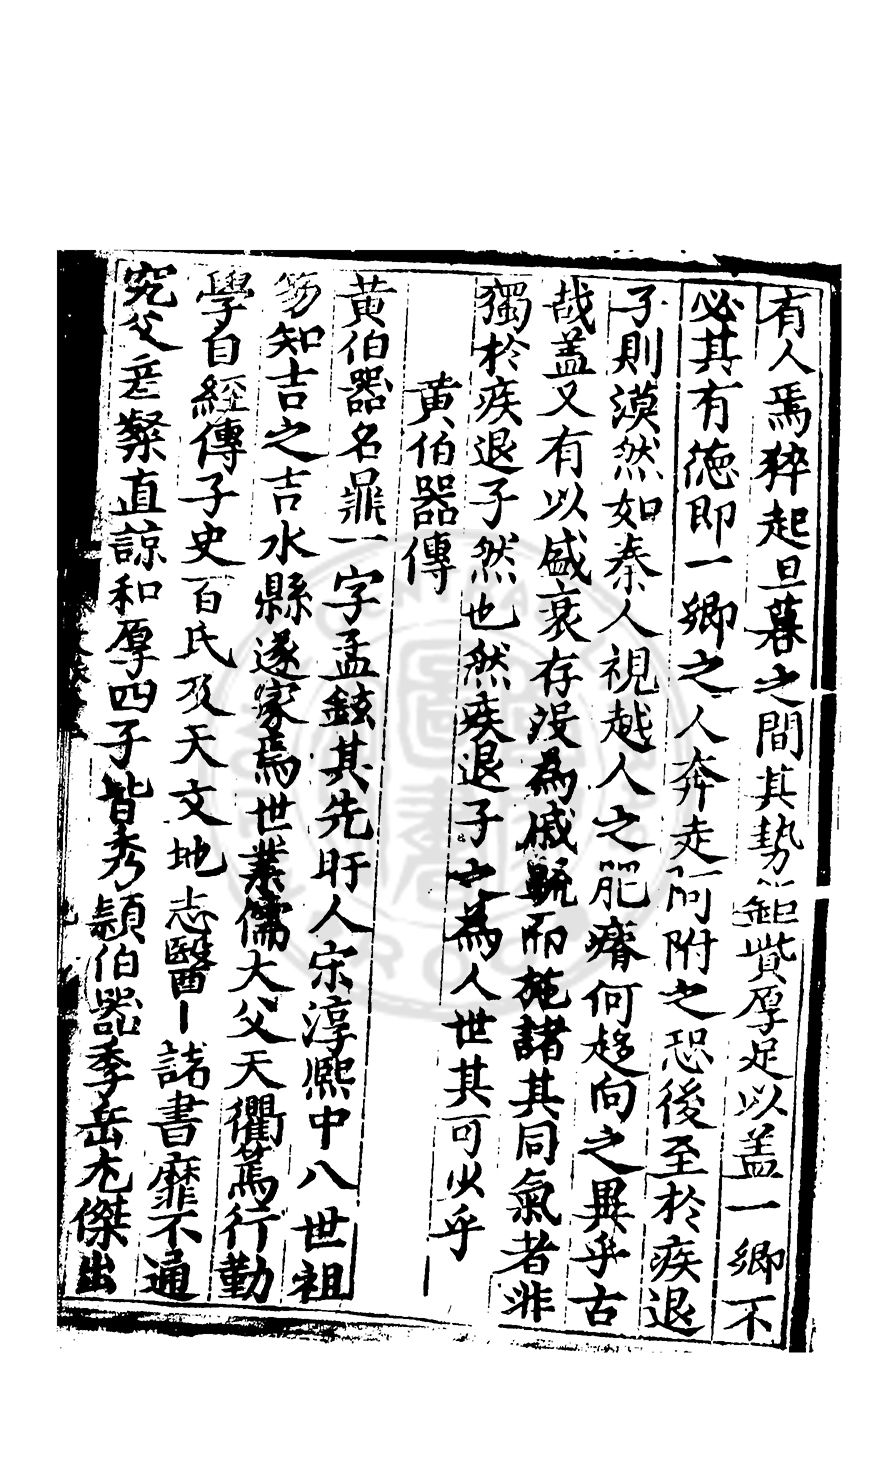 有人焉猝起旦暮之間其勢鉅貲厚足以盖一鄉不
必其有德即一鄉之人奔走阿附之恐後至於疾退
子則漠然如秦人視越人之肥瘠何趍向之異乎古
哉盖又有以盛衰存没為戚踈而施諸其同氣者非
獨於疾退子然也然疾退子之為人世其可少乎
黄伯器傳
黄伯器名鼎一字孟鉉其先盱人宋淳熙中八世祖
笏知吉之吉水縣遂家焉世業儒大父天衢篤行勤
學自經傳子史百氏及天文地志醫卜諸書靡不通
究父彦粲直諒和厚四子皆秀穎伯器季岳尤傑出